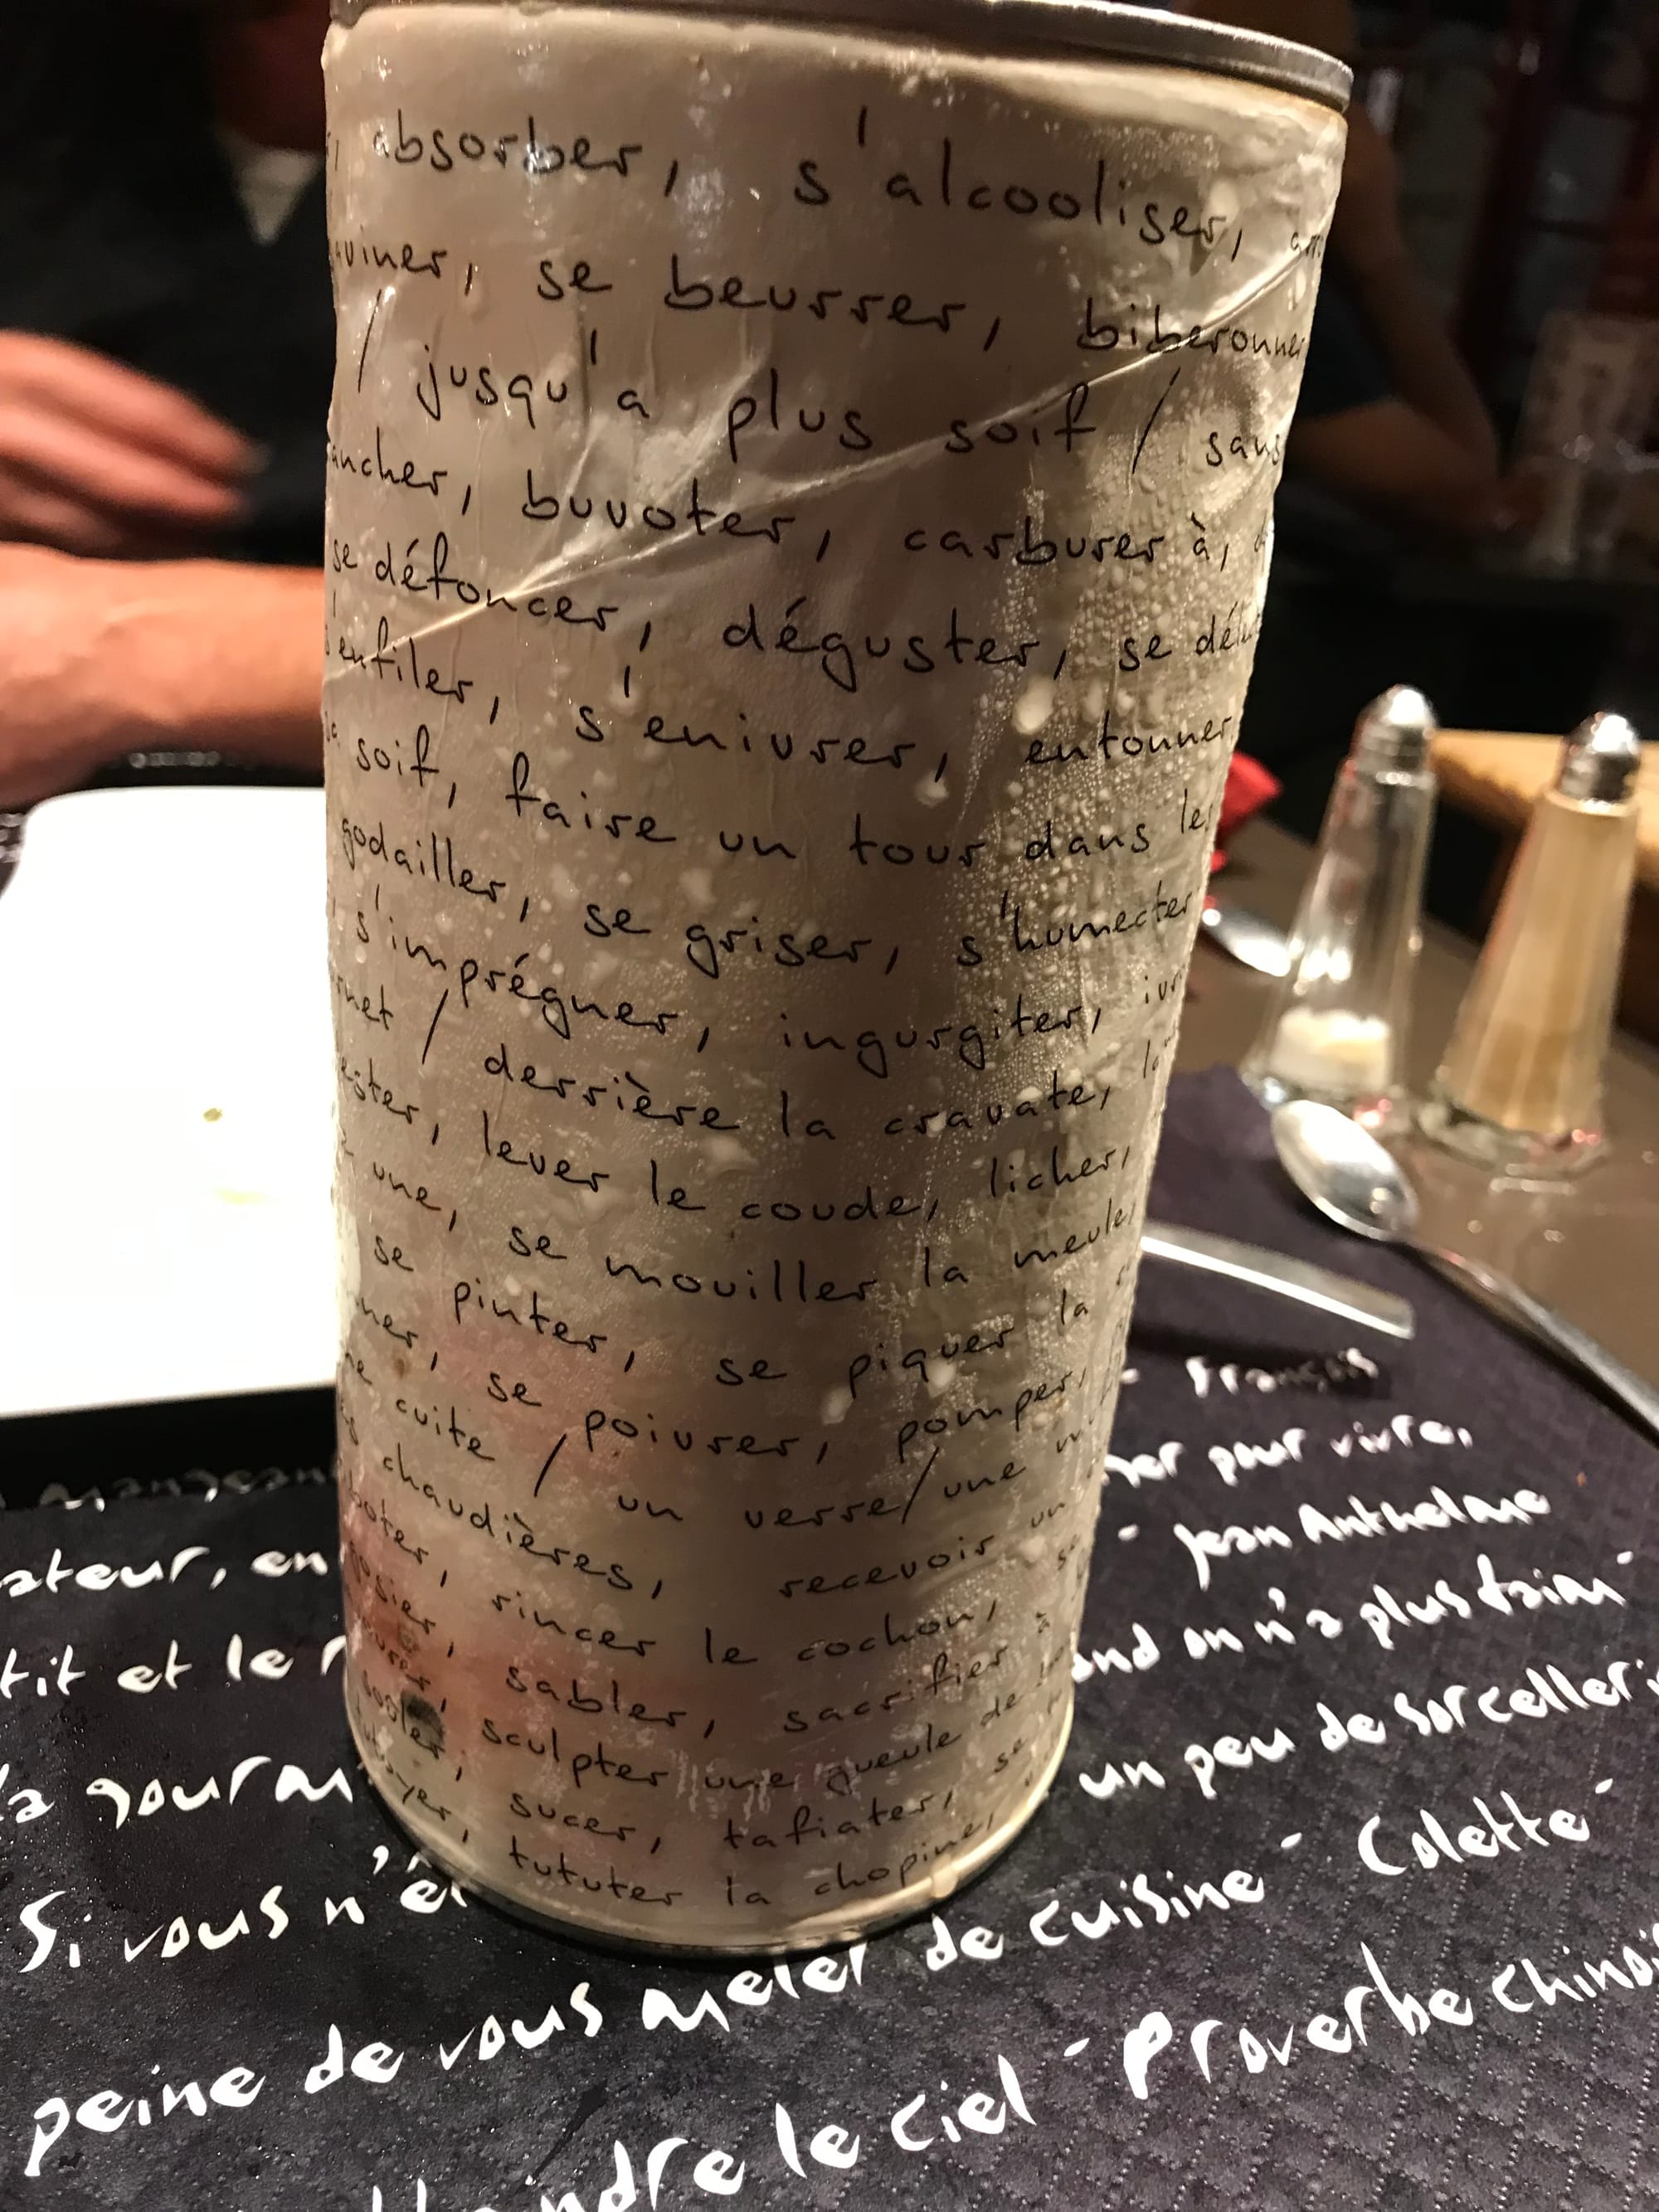 absorber, s'alcooliser,
se beurrer, biberonner
/ jusqu'a plus soif / sans
buvoter, carburer à,
se défoncer, déguster, se
s'enfiler, s'enivrer, entonner
soif, faire un tour dans les
godailler, se griser, s'humecter
s'imprégner, ingurgiter,
/ derrière la cravate,
lever le coude, licher,
une, se mouiller la meule,
se pinter, se piquer la
se poivrer, pomper,
cuite / un verre / une
chaudières, recevoir un
rincer le cochon,
sabler, sacrifier à
sculpter une gueule de
sucer, tafiater, se
tututer la chopine,
- François
pour vivre,
- Jean Anthelme
en
tit et le
on n'a plus faim -
la
un peu de sorcellerie
Si vous n'ê
peine de vous meler de cuisine - Colette -
le ciel - Proverbe chinois